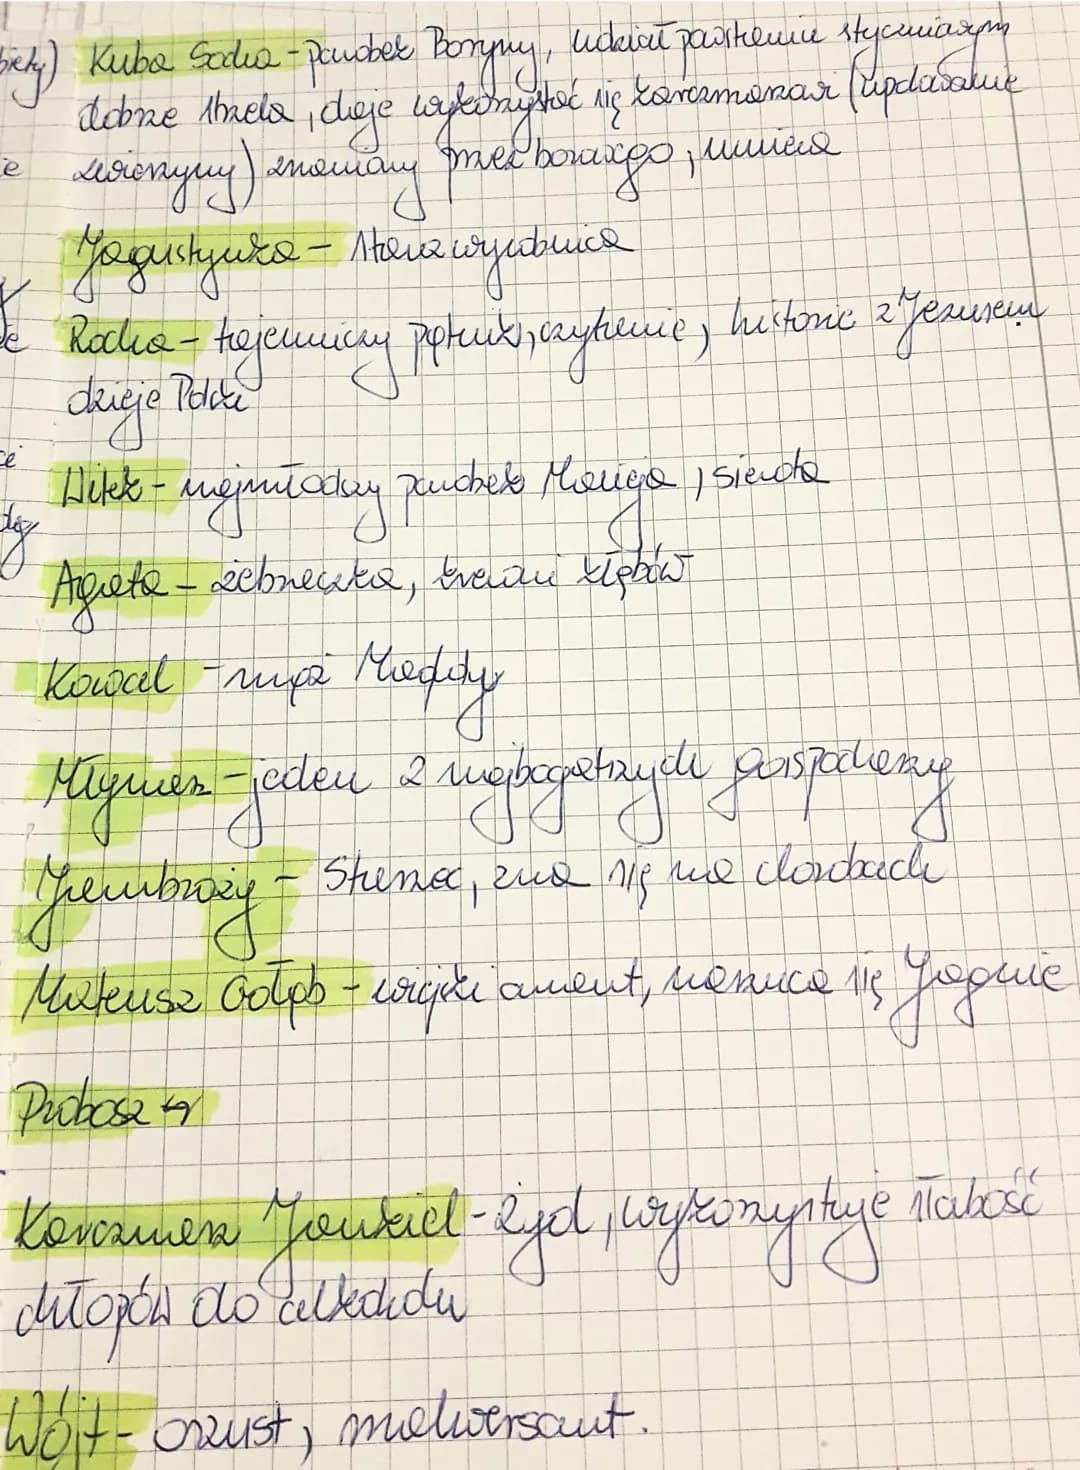 biety) Kuba Socha - parobek Boryny, udział powstaniu styczniowym
dobrze strzela, daje wykorzystać się karczmarzowi (updawanie
ie zwierzyny) przez borowego, umiera
Jagustynka - stara wyrobnica
Rocho - tajemniczy pątnik, czytanie, historie z Jezusem
dzieje Polski
Witek - najmłodszy parobek Macieja, sierota
Agata - żebraczka, krewni kłębów
Kowal - mąż Magdy
Młynarz - jeden z najbogatszych gospodarzy
Jambroży - Starzec, zna się na chorobach
Mateusz Gołąb - wiejski amant, narzuca się Jagnie
Probosz ↪
Karczmarz Jankiel - żyd, wykorzystuje słabość
chłopów do alkoholu
Wójt - oszust, malwersant.